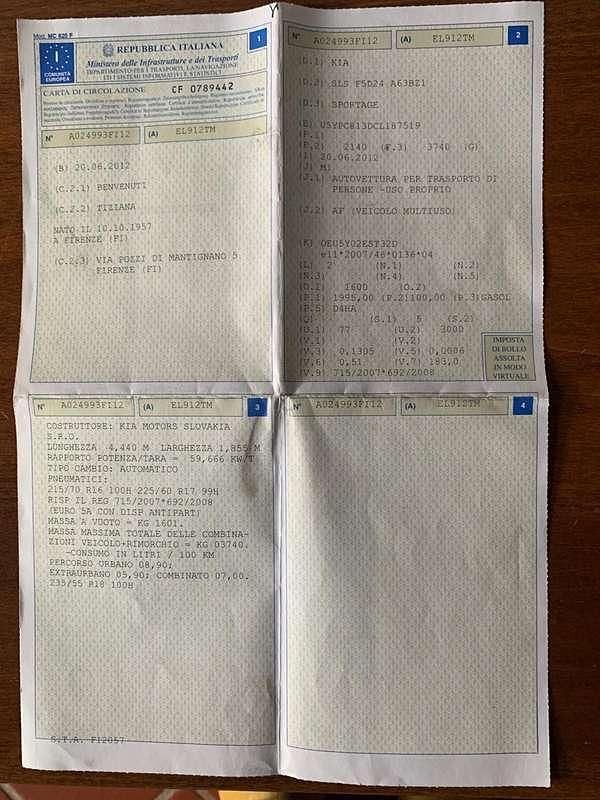 Mod. MC 820 F
1
I
COMUNITÀ
EUROPEA
REPUBBLICA ITALIANA
Ministero delle Infrastrutture e dei Trasporti
DIPARTIMENTO PER I TRASPORTI, LA NAVIGAZIONE
ED I SISTEMI INFORMATIVI E STATISTICI
CARTA DI CIRCOLAZIONE CF 0789442
N° A024993FI12 (A) EL912TM
(B) 20.06.2012
(C.2.1) BENVENUTI
(C.2.2) TIZIANA
NATO IL 10.10.1957
A FIRENZE (FI)
(C.2.3) VIA POZZI DI MANTIGNANO 5
FIRENZE (FI)
N° A024993FI12 (A) EL912TM 2
(D.1) KIA
(D.2) SLS F5D24 A63BZ1
(D.3) SPORTAGE
(E) U5YPC813DCL187519
(F.1)
(F.2) 2140 (F.3) 3740 (G)
(I) 20.06.2012
(J) M1
(J.1) AUTOVETTURA PER TRASPORTO DI
PERSONE -USO PROPRIO
(J.2) AF (VEICOLO MULTIUSO)
(K) OEU5Y02EST32D
e11*2007/46*0136*04
(L) 2 (N.1) (N.2)
(N.3) (N.4) (N.5)
(O.1) 1600 (O.2)
(P.1) 1995,00 (P.2)100,00 (P.3)GASOL
(P.5) D4HA
(Q) (S.1) 5 (S.2)
(U.1) 77 (U.2) 3000
(V.1) (V.2)
(V.3) 0,1305 (V.5) 0,0006
(V.6) 0,51 (V.7) 183,0
(V.9) 715/2007*692/2008
IMPOSTA
DI BOLLO
ASSOLTA
IN MODO
VIRTUALE
N° A024993FI12 (A) EL912TM 3
COSTRUTTORE: KIA MOTORS SLOVAKIA
S.R.O.
LUNGHEZZA 4,440 M LARGHEZZA 1,855 M
RAPPORTO POTENZA/TARA = 59,666 KW/T
TIPO CAMBIO: AUTOMATICO
PNEUMATICI:
215/70 R16 100H 225/60 R17 99H
RISP IL REG 715/2007*692/2008
(EURO 5A CON DISP ANTIPART)
MASSA A VUOTO = KG 1601.
MASSA MASSIMA TOTALE DELLE COMBINA-
ZIONI VEICOLO+RIMORCHIO = KG 03740.
-CONSUMO IN LITRI / 100 KM
PERCORSO URBANO 08,90;
EXTRAURBANO 05,90; COMBINATO 07,00.
235/55 R18 100H
S.T.A. FI2057
N° A024993FI12 (A) EL912TM 4